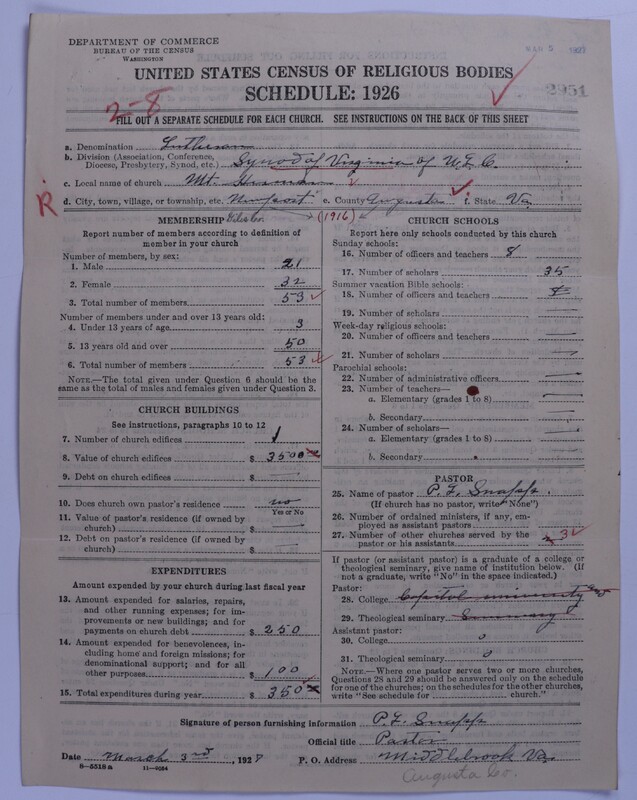 DEPARTMENT OF COMMERCE
BUREAU OF THE CENSUS
WASHINGTON
MAR 5 1927
UNITED STATES CENSUS OF RELIGIOUS BODIES
SCHEDULE: 1926
2951
2-8
FILL OUT A SEPARATE SCHEDULE FOR EACH CHURCH. SEE INSTRUCTIONS ON THE BACK OF THIS SHEET
a. Denomination Lutheran
b. Division (Association, Conference, Diocese, Presbytery, Synod, etc.) Synod of Virginia of U.L.C.
c. Local name of church Mt. Hermon
R
d. City, town, village, or township, etc. Newport e. County Augusta f. State Va.
(1916)
MEMBERSHIP
Report number of members according to definition of member in your church
Number of members, by sex:
1. Male 21
2. Female 32
3. Total number of members 53
Number of members under and over 13 years old:
4. Under 13 years of age 3
5. 13 years old and over 50
6. Total number of members 53
NOTE.—The total given under Question 6 should be the same as the total of males and females given under Question 3.
CHURCH BUILDINGS
See instructions, paragraphs 10 to 12
7. Number of church edifices 1
8. Value of church edifices $ 3500
9. Debt on church edifices $
10. Does church own pastor's residence no
Yes or No
11. Value of pastor's residence (if owned by church) $
12. Debt on pastor's residence (if owned by church) $
EXPENDITURES
Amount expended by your church during last fiscal year
13. Amount expended for salaries, repairs, and other running expenses; for improvements or new buildings; and for payments on church debt $ 250
14. Amount expended for benevolences, including home and foreign missions; for denominational support; and for all other purposes $ 100
15. Total expenditures during year $ 350
CHURCH SCHOOLS
Report here only schools conducted by this church
Sunday schools:
16. Number of officers and teachers 8
17. Number of scholars 35
Summer vacation Bible schools:
18. Number of officers and teachers
19. Number of scholars
Week-day religious schools:
20. Number of officers and teachers
21. Number of scholars
Parochial schools:
22. Number of administrative officers
23. Number of teachers—
a. Elementary (grades 1 to 8)
b. Secondary
24. Number of scholars—
a. Elementary (grades 1 to 8)
b. Secondary
PASTOR
25. Name of pastor P. L. Snapp.
(If church has no pastor, write "None")
26. Number of ordained ministers, if any, employed as assistant pastors
27. Number of other churches served by the pastor or his assistants 3
If pastor (or assistant pastor) is a graduate of a college or theological seminary, give name of institution below. (If not a graduate, write "No" in the space indicated.)
Pastor:
28. College Capitol University and
29. Theological seminary Seminary
Assistant pastor:
30. College 0
31. Theological seminary 0
NOTE.—Where one pastor serves two or more churches, Questions 28 and 29 should be answered only on the schedule for one of the churches; on the schedules for the other churches, write "See schedule for church."
Signature of person furnishing information P. L. Snapp
Official title Pastor
Date March 3rd, 1927 P. O. Address Middlebrook Va
8-5518a 11-9054
Augusta Co.